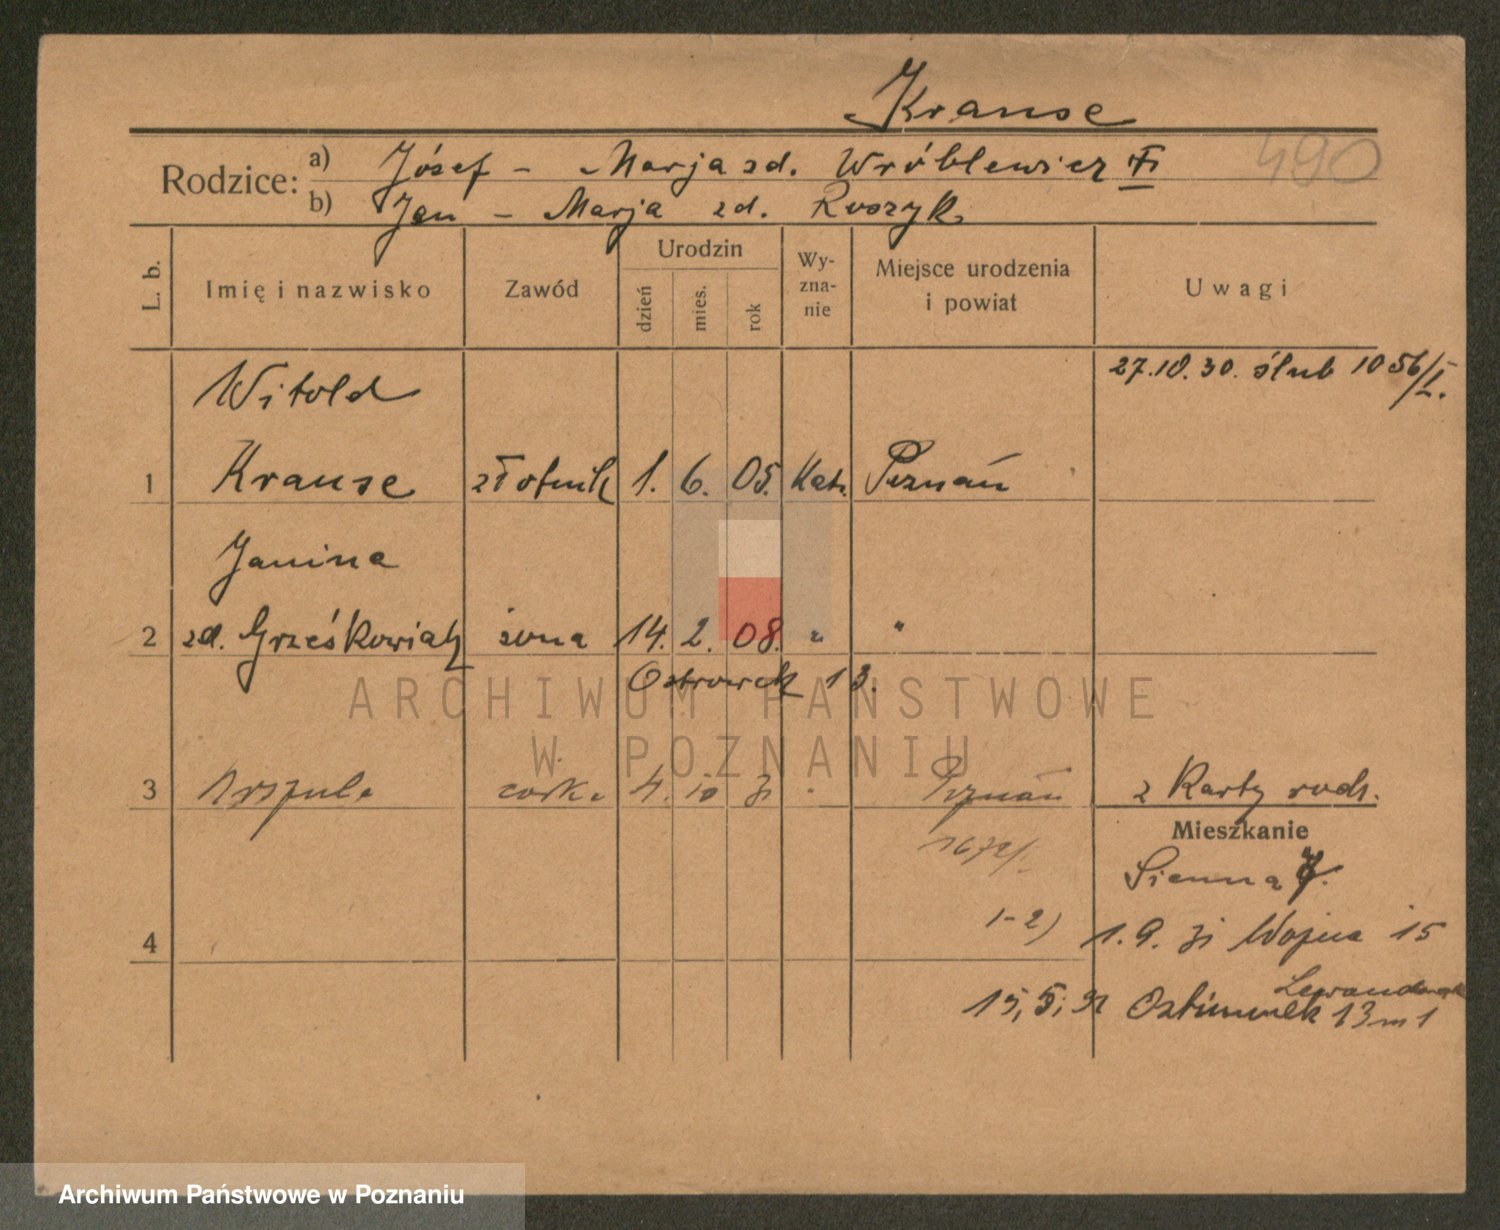 Krause
490
Rodzice: a) Józef - Marja zd. Wróblewicz
b) Jan - Marja zd. Ruszyk.
L. b. Imię i nazwisko Zawód Urodzin dzień mies. rok Wyznanie Miejsce urodzenia i powiat Uwagi
27.10.30. ślub 1056/I.
Witold
1 Krause złotnik 1. 6. 05. kat. Poznań
Janina
2 zd. Grześkowiak żona 14. 2. 08. " "
Ostrówek 13.
3 Urszula córka 4. 10 31 " Poznań z karty rodz.
1672/.
Mieszkanie
Sienna
4
1-2) 1.9. 31 Wojna 15
15, 5, 31 Ostrówek 13 m 1
ARCHIWUM PAŃSTWOWE
W POZNANIU
Archiwum Państwowe w Poznaniu